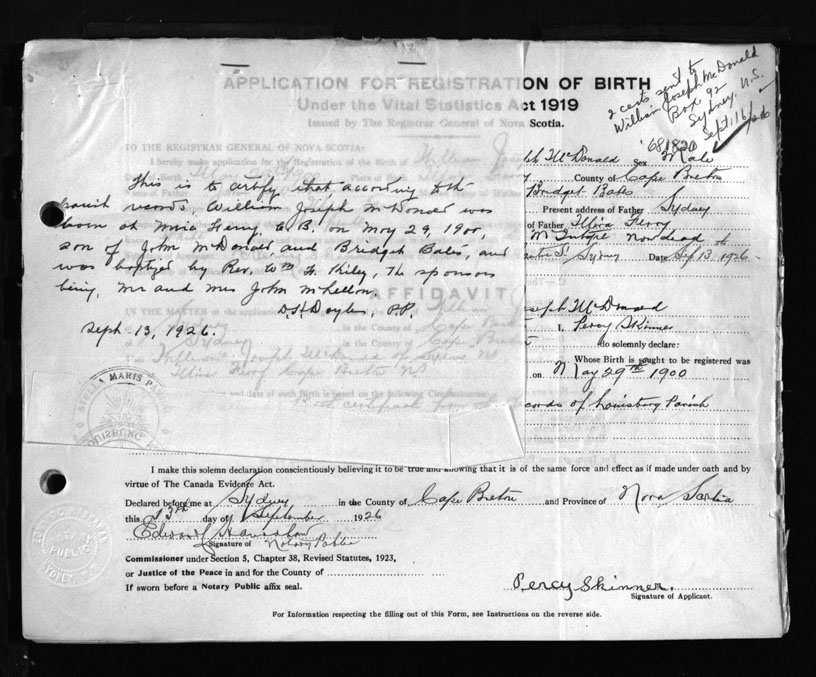 2 cents sent to
William Joseph McDonald
Box 92
Sydney, N.S.
Sept. 16/26
APPLICATION FOR REGISTRATION OF BIRTH
Under the Vital Statistics Act 1919
Issued by the Registrar General of Nova Scotia.
TO THE REGISTRAR GENERAL OF NOVA SCOTIA:
I hereby make application for Registration of the Birth of William Joseph McDonald Sex Male
County of Cape Breton
Bridget Bates
Present address of Father Sydney
of Father Mira Ferry
now dead
Sydney Date Sep 13, 1926
This is to certify that according to the
parish records, William Joseph McDonald was
born at Mira Ferry, C. B. on May 29, 1900,
son of John McDonald and Bridget Bates, and
was baptized by Rev. Wm F. Kiley, the sponsors
being, Mr and Mrs John
Doyle, P.P.
Sept. 13, 1926.
AFFIDAVIT
Joseph McDonald
I, Percy Skinner
do solemnly declare:
Whose Birth is sought to be registered was
on May 29th 1900
and date of such Birth is based on the following
records of Louisburg Parish
STELLA MARIS
I make this solemn declaration conscientiously believing it to be true and knowing that it is of the same force and effect as if made under oath and by
virtue of The Canada Evidence Act.
Declared before me at Sydney in the County of Cape Breton and Province of Nova Scotia
this 13th day of September 1926
Signature of Notary Public
Commissioner under Section 5, Chapter 38, Revised Statutes, 1923,
or Justice of the Peace in and for the County of
If sworn before a Notary Public affix seal.
Percy Skinner.
Signature of Applicant.
For Information respecting the filling out of this Form, see Instructions on the reverse side.